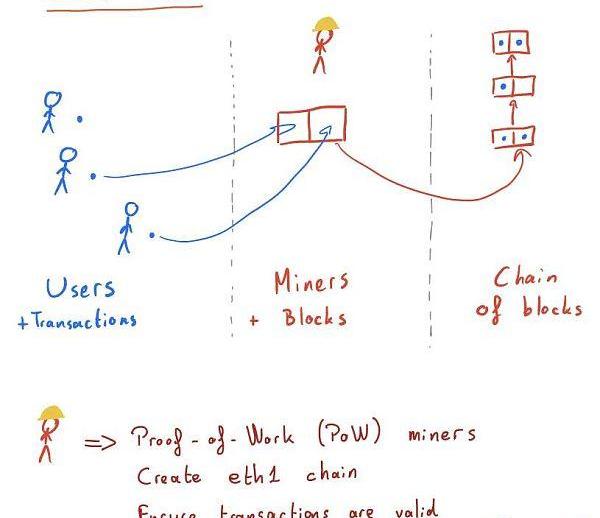 Users
+ Transactions
Miners
+ Blocks
Chain
of blocks
=> Proof-of-Work (PoW) miners
Create eth1 chain
Ensure transactions are valid